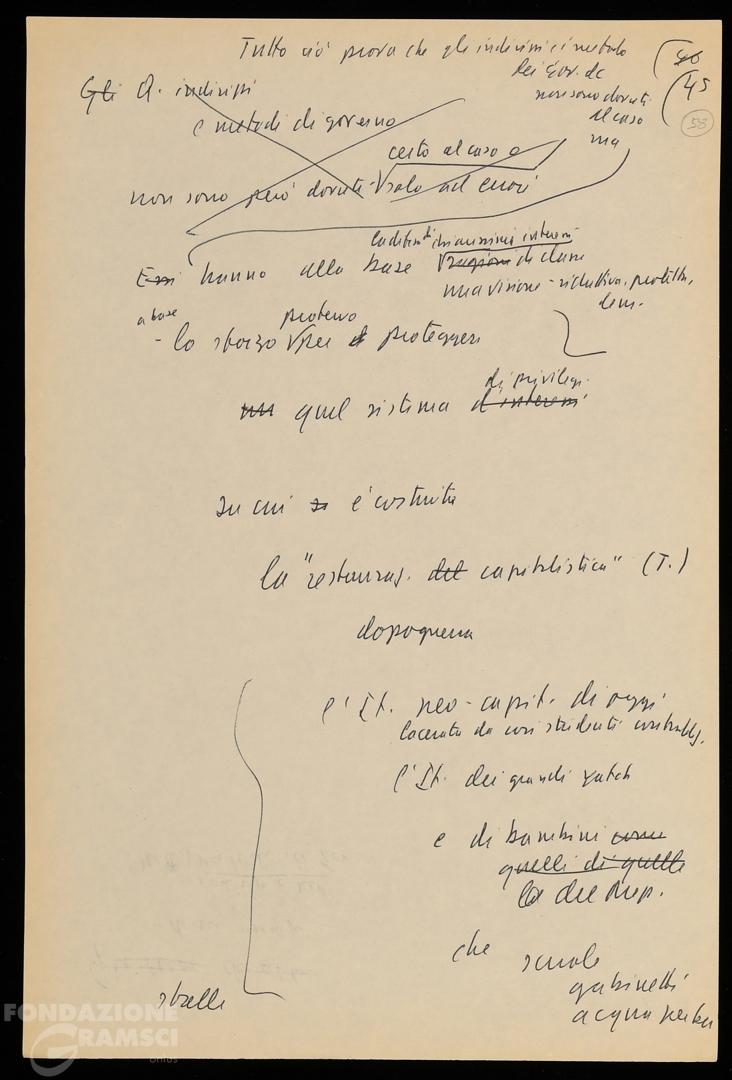 Tutto ciò prova che gli indirizzi i metodi
dei gov. dc
non sono dovuti
al caso
ma
56
45
58
Gli Q. indirizzi
e metodi di governo
certo al caso o
non sono però dovuti solo ad errori
chiarissimi interessi
Essi hanno alla base ragioni di classe
una visione - riduttiva, protetta,
dem.
a base
- lo sforzo per proteggere
di privilegi
un quel sistema d'interessi
su cui si è costruita
la "restauraz. del capitalistica" (T.)
dopoguerra
l'It. neo-capit. di oggi
lacerata da così stridenti contradd.
l'It. dei grandi yatch
e di bambini come
quelli di quelle
là del Nap.
che scuole
gabinetti
acqua
stralli
FONDAZIONE
GRAMSCI
onlus